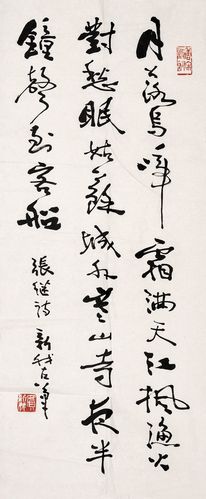 月落烏啼霜满天江楓漁火
對愁眠姑蘇城外寒山寺夜半
鐘聲到客船
張继詩 新我左筆